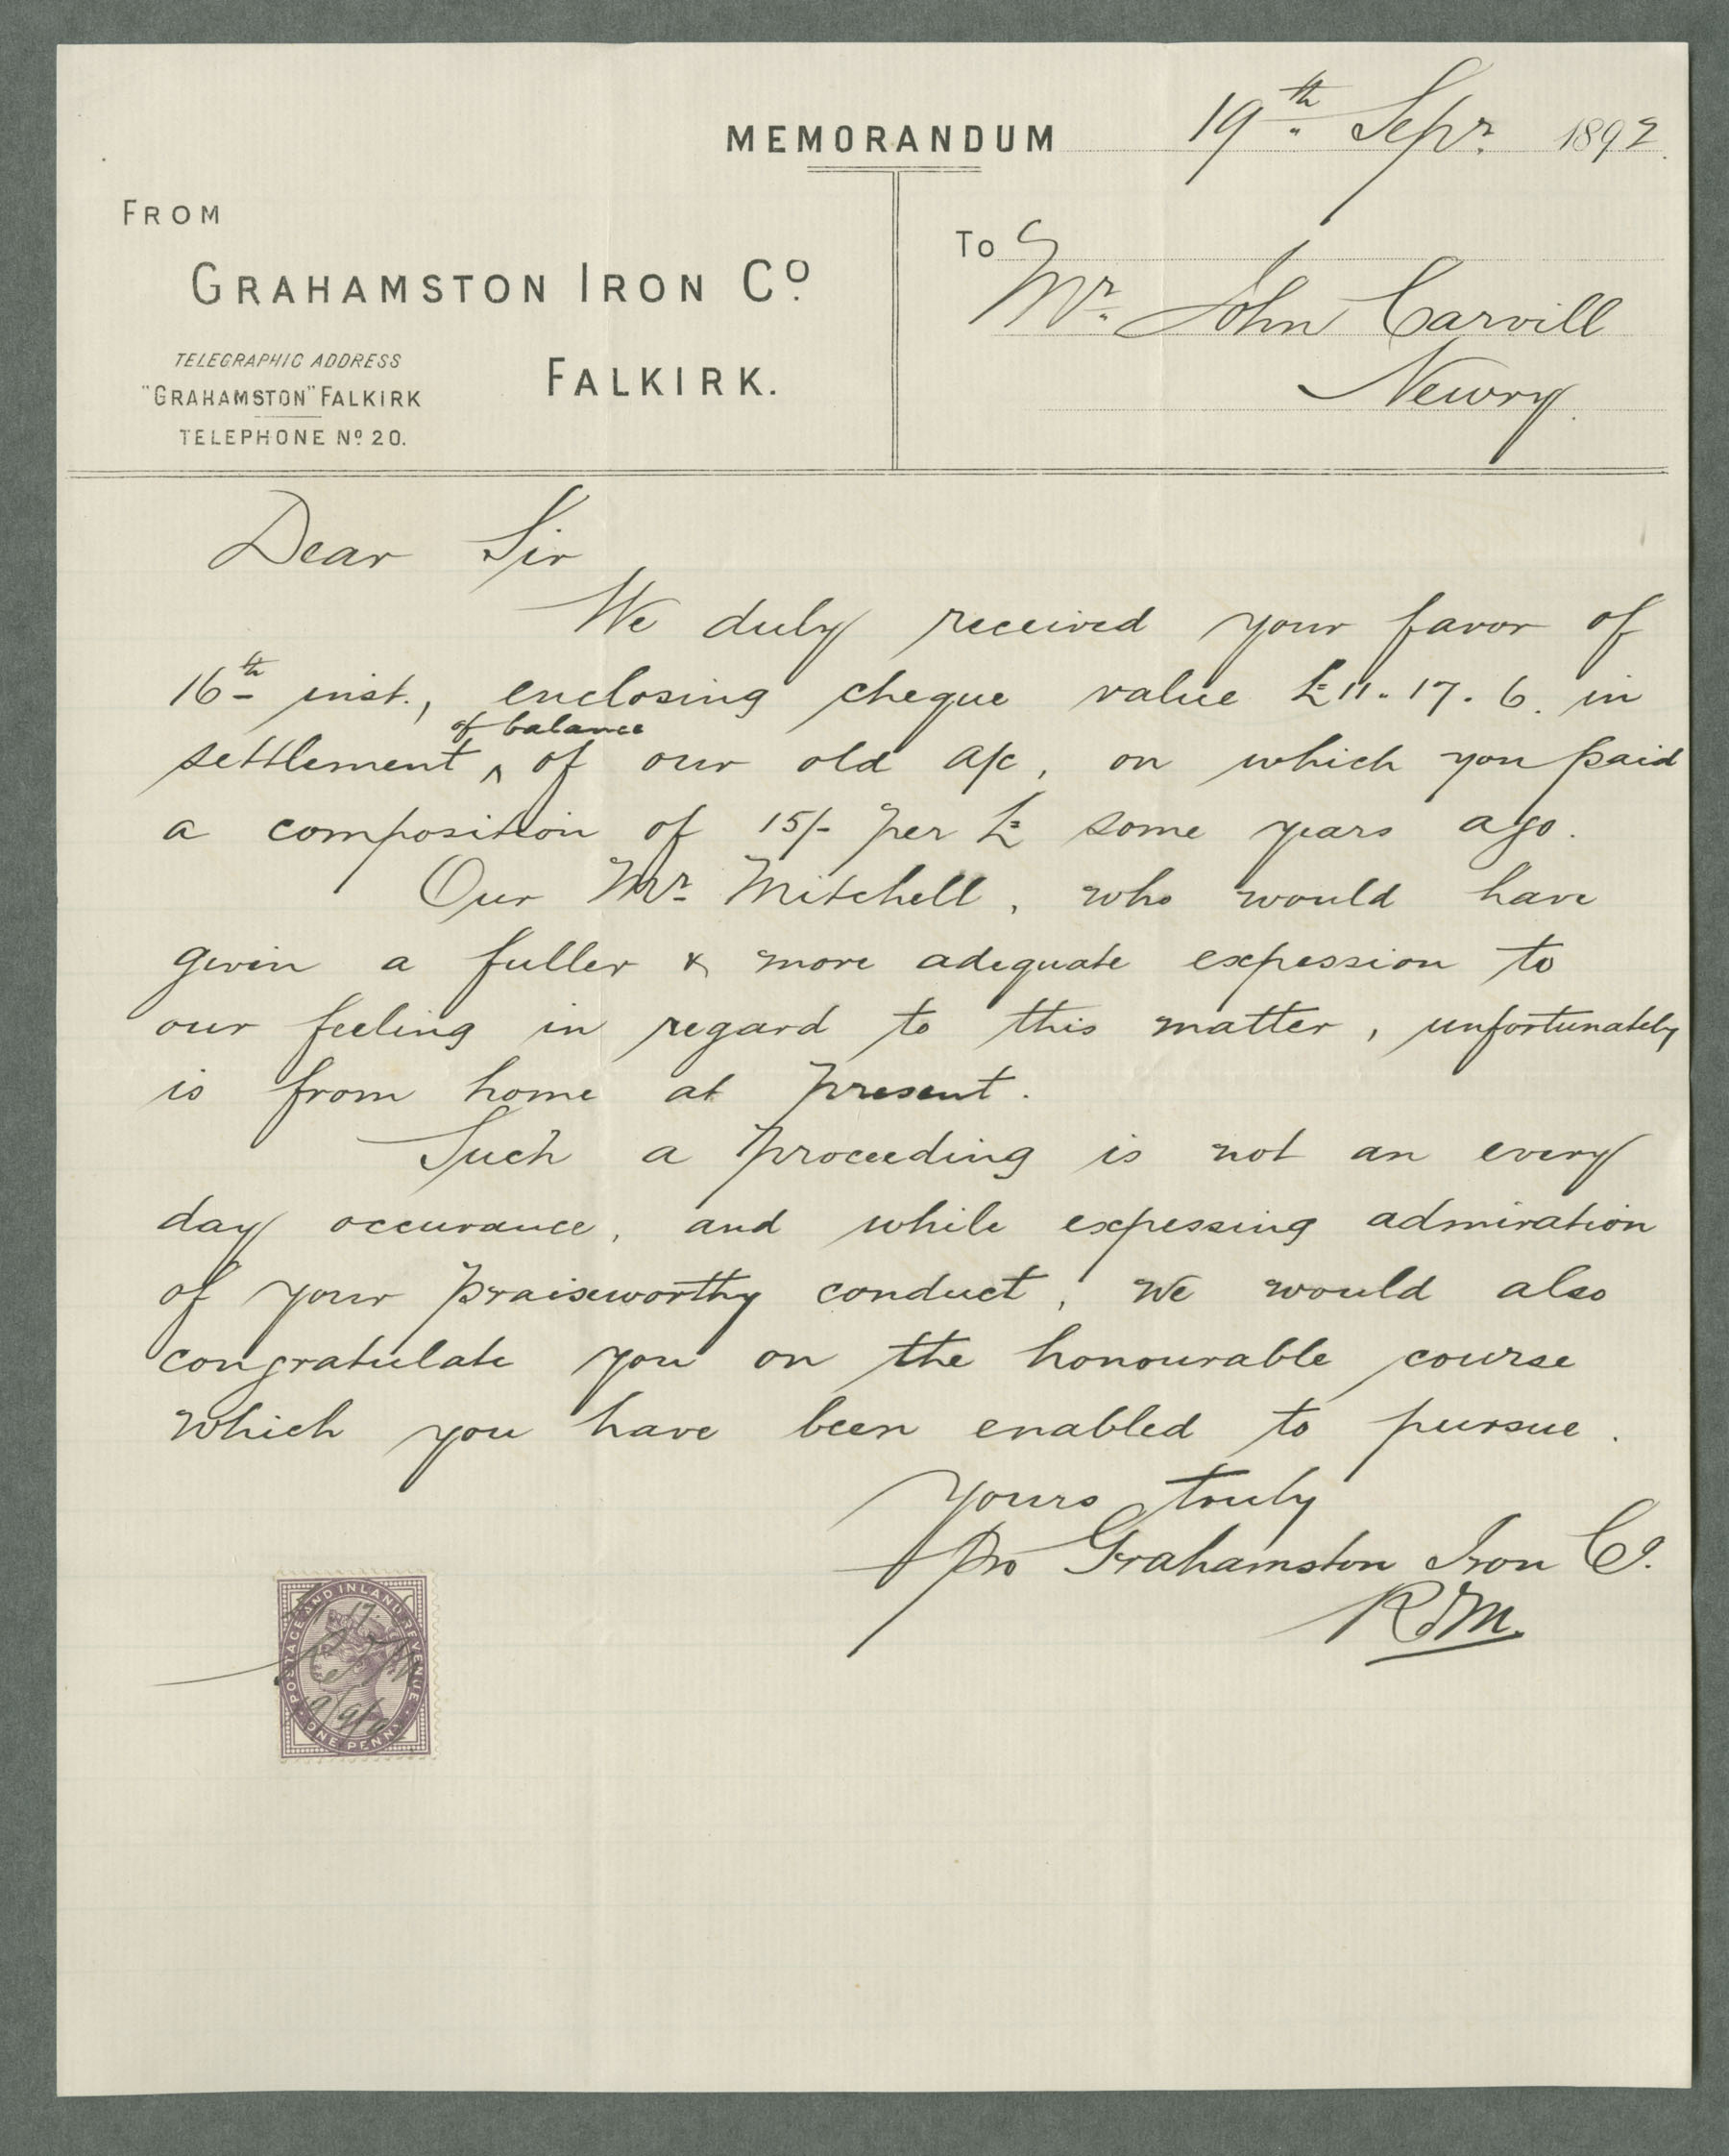 MEMORANDUM 19th Sepr. 1892.
FROM
GRAHAMSTON IRON Co.
TELEGRAPHIC ADDRESS
"GRAHAMSTON" FALKIRK
TELEPHONE No 20.
FALKIRK.
To
Mr. John Carvill
Newry.
Dear Sir
We duly received your favor of
16th inst., enclosing cheque value £11.17.6. in
of balance
settlement ^ of our old a/c, on which you paid
a composition of 15/- per £ some years ago.
Our Mr. Mitchell, who would have
given a fuller & more adequate expession to
our feeling in regard to this matter, unfortunately
is from home at present.
Such a proceeding is not an every
day occurance, and while expessing admiration
of your praiseworthy conduct, we would also
congratulate you on the honourable course
which you have been enabled to pursue.
Yours truly
pro Grahamston Iron Co.
POSTAGE AND INLAND REVENUE
ONE PENNY